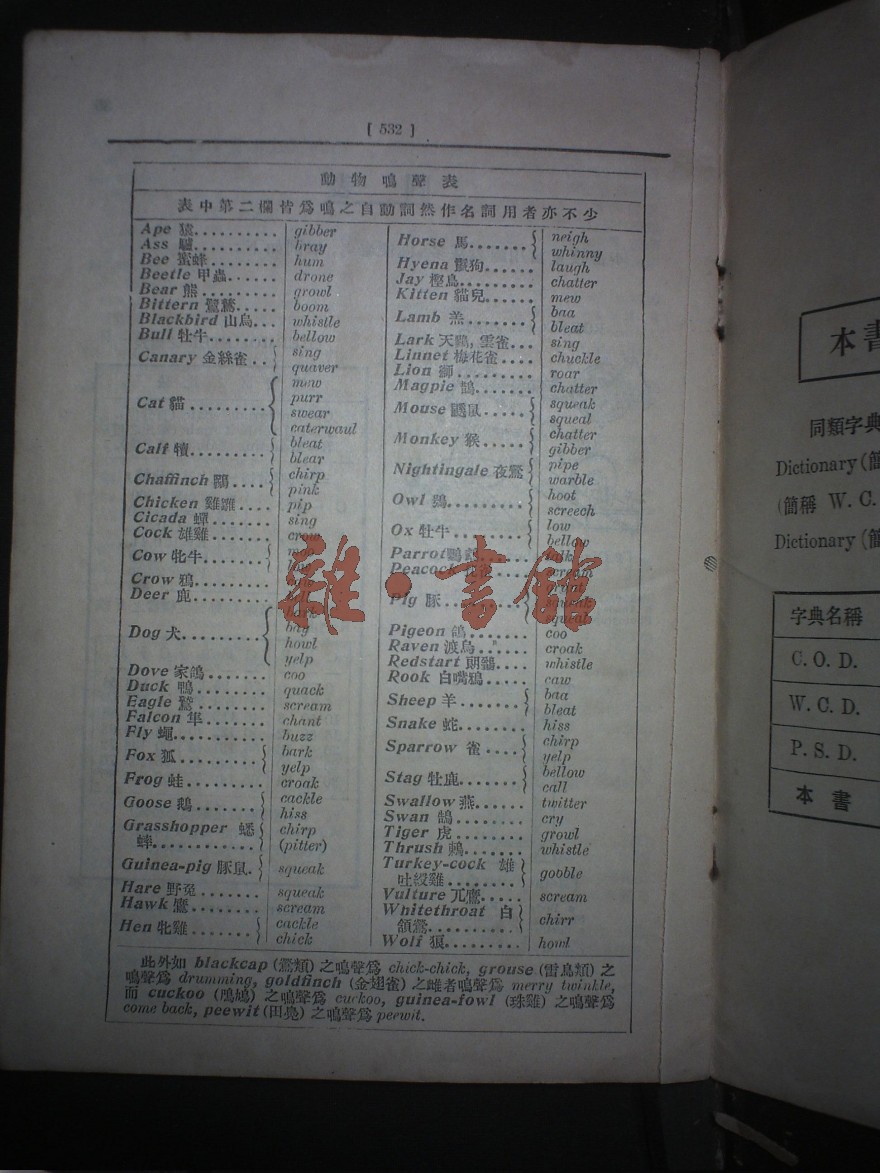 [ 532 ]
動物鳴聲表
表中第二欄皆爲鳴之自動詞然作名詞用者亦不少
Ape 猿.......... gibber
Ass 驢.......... bray
Bee 蜜蜂........ hum
Beetle 甲蟲...... drone
Bear 熊.......... growl
Bittern 鷺鷥..... boom
Blackbird 山烏... whistle
Bull 牡牛........ bellow
Canary 金絲雀.. sing
quaver
Cat 貓......... mew
purr
swear
caterwaul
Calf 犢......... bleat
blear
Chaffinch 鷽.... chirp
pink
Chicken 雞雛.... pip
Cicada 蟬....... sing
Cock 雄雞....... crow
Cow 牝牛.......
Crow 鴉.........
Deer 鹿..........
Dog 犬.........
bay
howl
yelp
Dove 家鴿....... coo
Duck 鴨......... quack
Eagle 鷲......... scream
Falcon 隼....... chant
Fly 蠅........... buzz
Fox 狐......... bark
yelp
Frog 蛙......... croak
Goose 鵝....... cackle
hiss
Grasshopper 蟋 chirp
蟀............ (pitter)
Guinea-pig 豚鼠. squeak
Hare 野兔....... squeak
Hawk 鷹......... scream
Hen 牝雞....... cackle
chick
Horse 馬....... neigh
whinny
Hyena 鬣狗...... laugh
Jay 樫鳥........ chatter
Kitten 貓兒...... mew
Lamb 羔....... baa
bleat
Lark 天鷚, 雲雀... sing
Linnet 梅花雀.... chuckle
Lion 獅.......... roar
Magpie 鵲....... chatter
Mouse 鼷鼠..... squeak
squeal
Monkey 猴..... chatter
gibber
Nightingale 夜鶯 pipe
warble
Owl 鴞......... hoot
screech
Ox 牡牛........ low
bellow
Parrot 鸚鵡 talk
Peacock 孔雀... scream
Pig 豚......... grunt
squeak
squeal
Pigeon 鴿....... coo
Raven 渡烏...... croak
Redstart 朗鶲.... whistle
Rook 白嘴鴉..... caw
Sheep 羊....... baa
bleat
Snake 蛇........ hiss
Sparrow 雀.... chirp
yelp
Stag 牡鹿....... bellow
call
Swallow 燕...... twitter
Swan 鵠......... cry
Tiger 虎......... growl
Thrush 鶇....... whistle
Turkey-cock 雄 gobble
吐綬雞........
Vulture 兀鷹..... scream
Whitethroat 白 chirr
頷鶯..........
Wolf 狼......... howl
此外如 blackcap (鶯類) 之鳴聲爲 chick-chick, grouse (雷鳥類) 之
鳴聲爲 drumming, goldfinch (金翅雀) 之雌者鳴聲爲 merry twinkle,
而 cuckoo (鳲鳩) 之鳴聲爲 cuckoo, guinea-fowl (珠雞) 之鳴聲爲
come back, peewit (田鳧) 之鳴聲爲 peewit.
雜·書館
本書
同類字典
Dictionary (簡
(簡稱 W. C.
Dictionary (簡
字典名稱
C. O. D.
W. C. D.
P. S. D.
本書